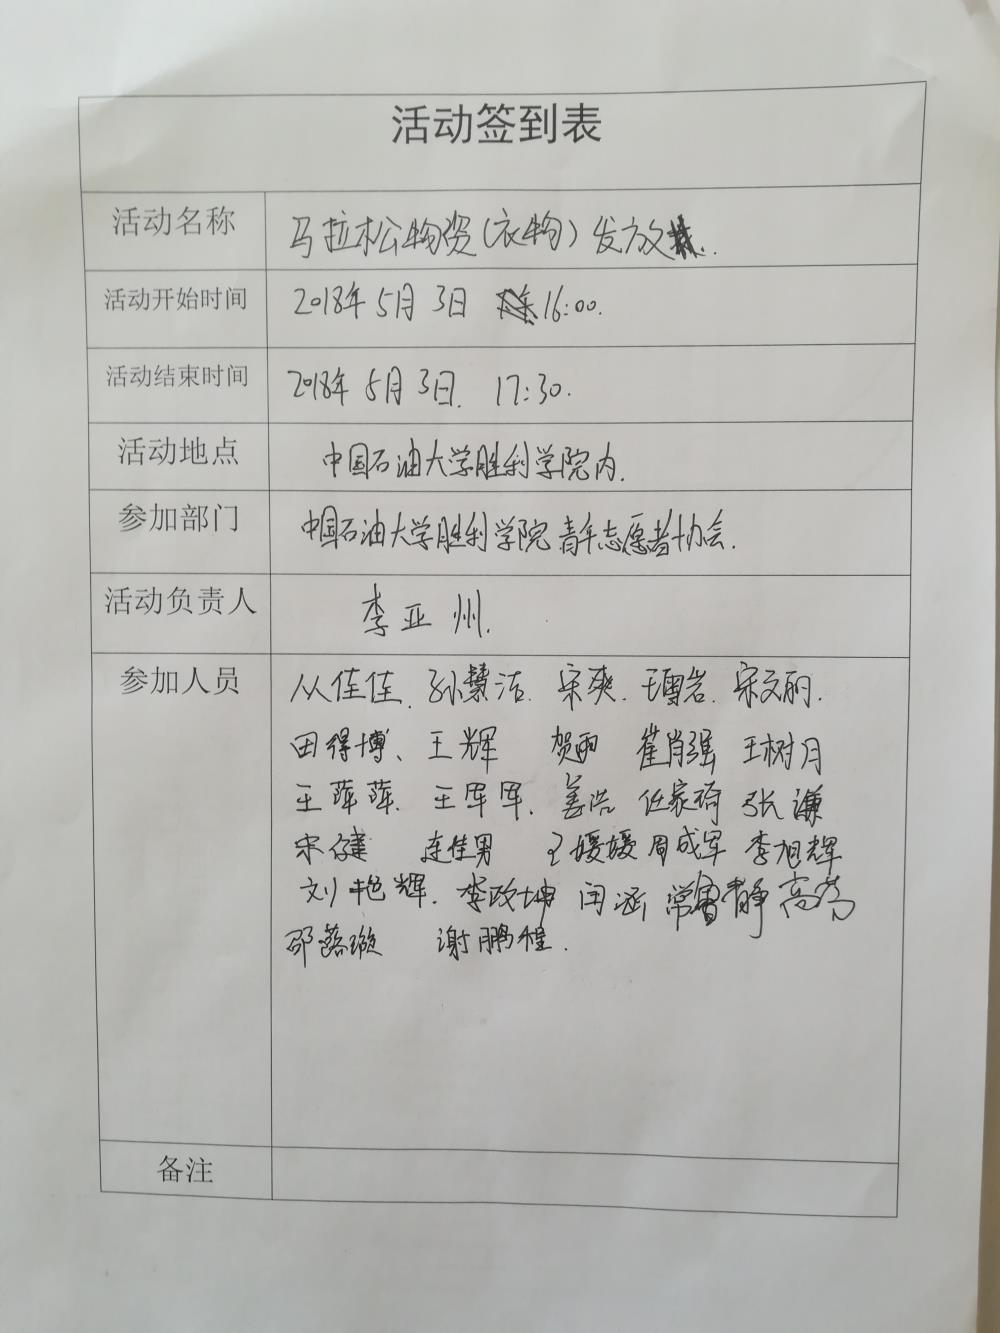 活动签到表
活动名称 马拉松物资(衣物)发放.
活动开始时间 2018年5月3日 16:00.
活动结束时间 2018年5月3日. 17:30.
活动地点 中国石油大学胜利学院内.
参加部门 中国石油大学胜利学院青年志愿者协会.
活动负责人 李亚州.
参加人员 从佳佳. 孙慧洁. 宋爽. 王雪岩. 宋文丽.
田得博、 王辉 贺雨 崔肖强 王树月
王萍萍. 王军军. 姜浩 任家琦 张谦
宋健 连佳男 王媛媛 周成军 李旭辉
刘艳辉. 李政坤 闫涵 常雪静 高芳
邵璇 谢鹏程.
备注